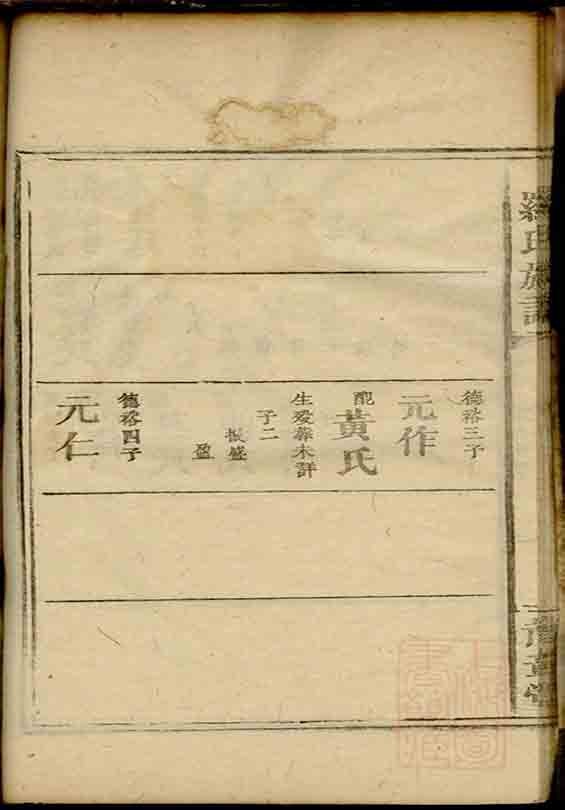 羅氏族譜
德裕三子
元作
配
黃氏
生歿葬未詳
子二
振盛
盈
德裕四子
元仁